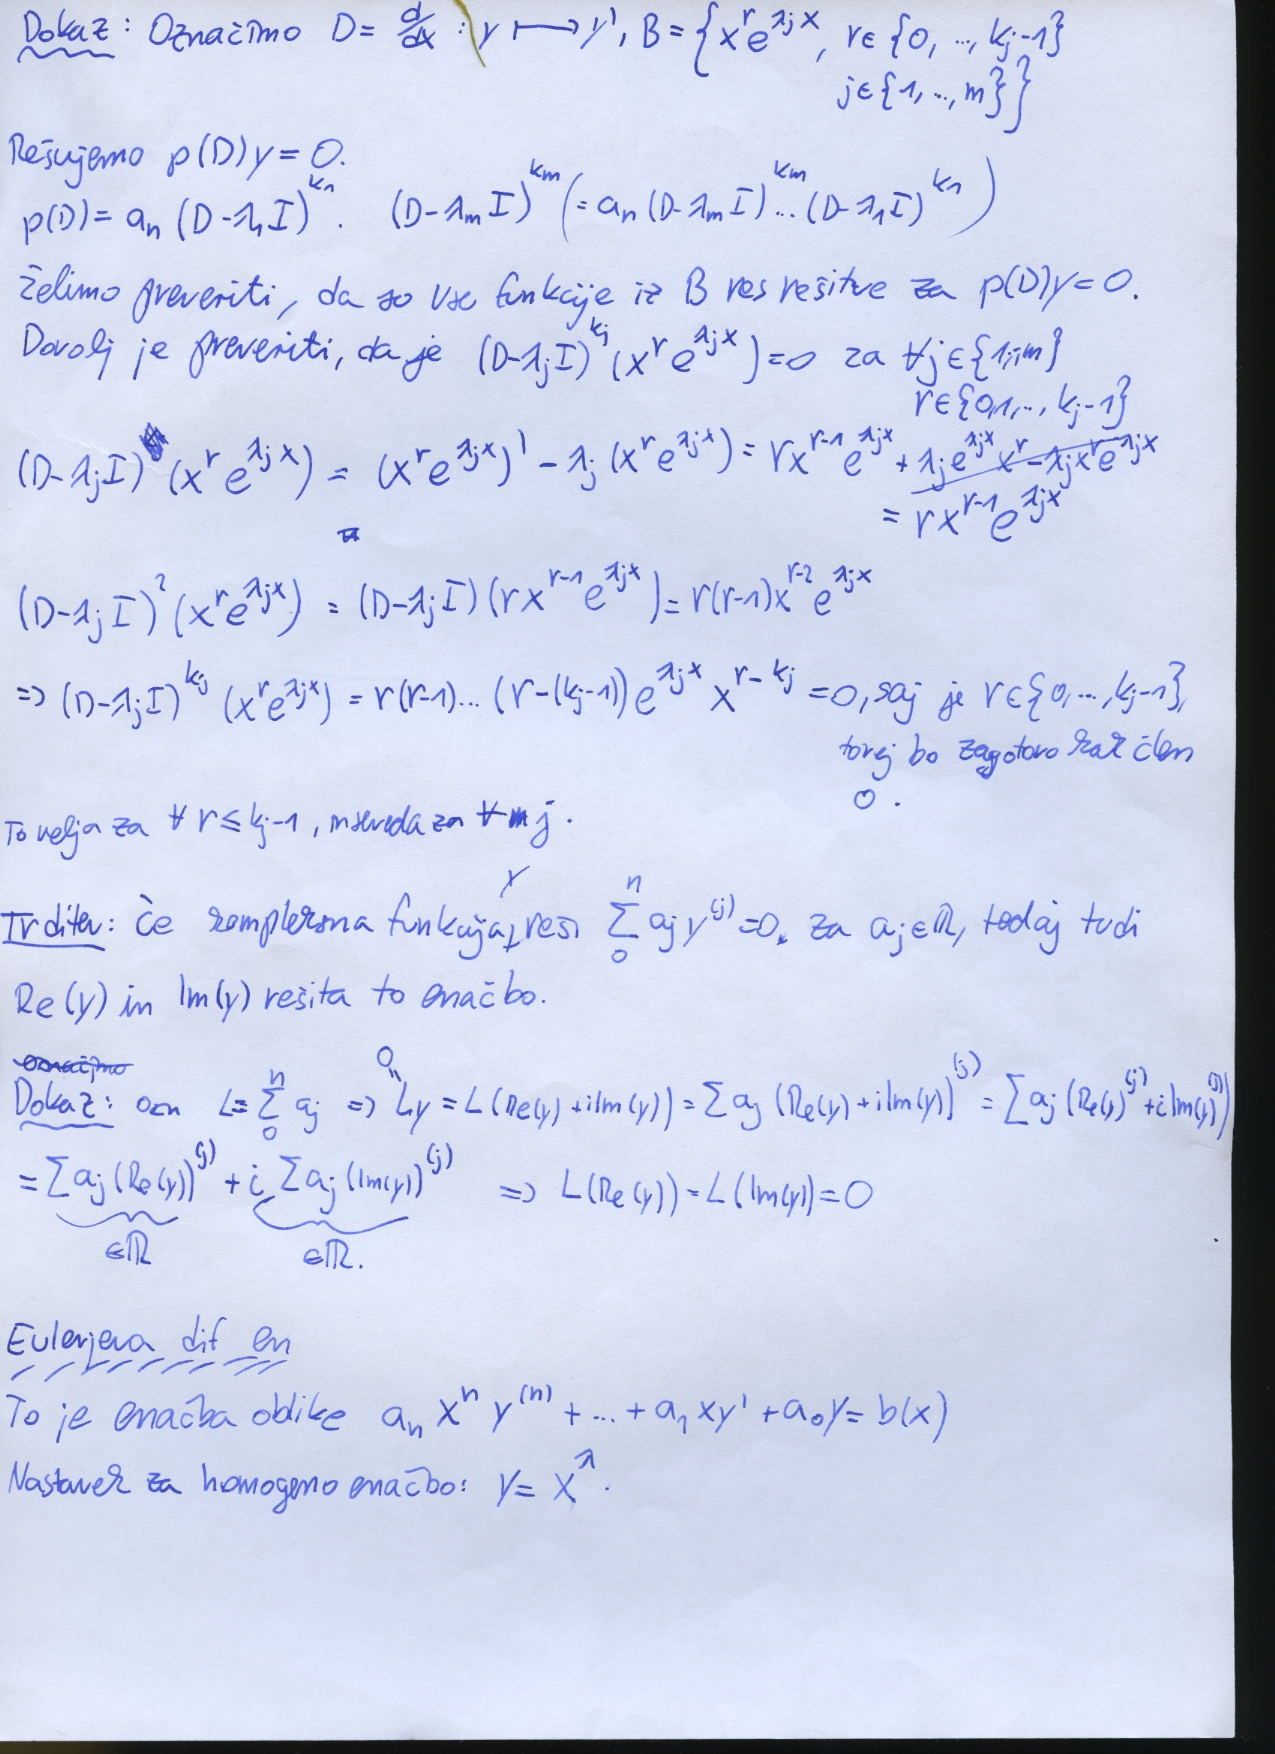 Dokaz: Označimo D = d/dx : y ⟼ y', B = {x^r e^{λ_j x}, r∈{0, ..., k_j-1}
j∈{1, .., m}}
Rešujemo p(D)y = 0.
p(D) = a_n (D-λ_1 I)^{k_1} . (D-λ_m I)^{k_m} (= a_n (D-λ_m I)^{k_m} ... (D-λ_1 I)^{k_1})
Želimo preveriti, da so vse funkcije iz B res rešitve za p(D)y=0.
Dovolj je preveriti, da je (D-λ_j I)^{k_j} (x^r e^{λ_j x}) = 0 za ∀j∈{1,..,m}
r∈{0,1,.., k_j-1}
(D-λ_j I) (x^r e^{λ_j x}) = (x^r e^{λ_j x})' - λ_j (x^r e^{λ_j x}) = r x^{r-1} e^{λ_j x} + λ_j e^{λ_j x} x^r - λ_j x^r e^{λ_j x}
= r x^{r-1} e^{λ_j x}
(D-λ_j I)^2 (x^r e^{λ_j x}) = (D-λ_j I) (r x^{r-1} e^{λ_j x}) = r(r-1) x^{r-2} e^{λ_j x}
=> (D-λ_j I)^{k_j} (x^r e^{λ_j x}) = r(r-1)... (r-(k_j-1)) e^{λ_j x} x^{r-k_j} = 0, saj je r∈{0,...,k_j-1},
torej bo zagotovo kak člen
0.
To velja za ∀ r ≤ k_j-1, in seveda za ∀ j.
Trditev: Če kompleksna funkcija y reši ∑_0^n a_j y^{(j)} = 0, za a_j∈ℝ, tedaj tudi
Re(y) in Im(y) rešita to enačbo.
označimo
Dokaz: ozn L = ∑_0^n a_j => 0 = Ly = L(Re(y) + i Im(y)) = ∑ a_j (Re(y) + i Im(y))^{(j)} = ∑ a_j (Re(y)^{(j)} + i Im(y)^{(j)})
= ∑ a_j (Re(y))^{(j)} + i ∑ a_j (Im(y))^{(j)} => L(Re(y)) = L(Im(y)) = 0
∈ℝ ∈ℝ.
Eulerjeva dif en
To je enačba oblike a_n x^n y^{(n)} + ... + a_1 x y' + a_0 y = b(x)
Nastavek za homogeno enačbo: y = x^λ.